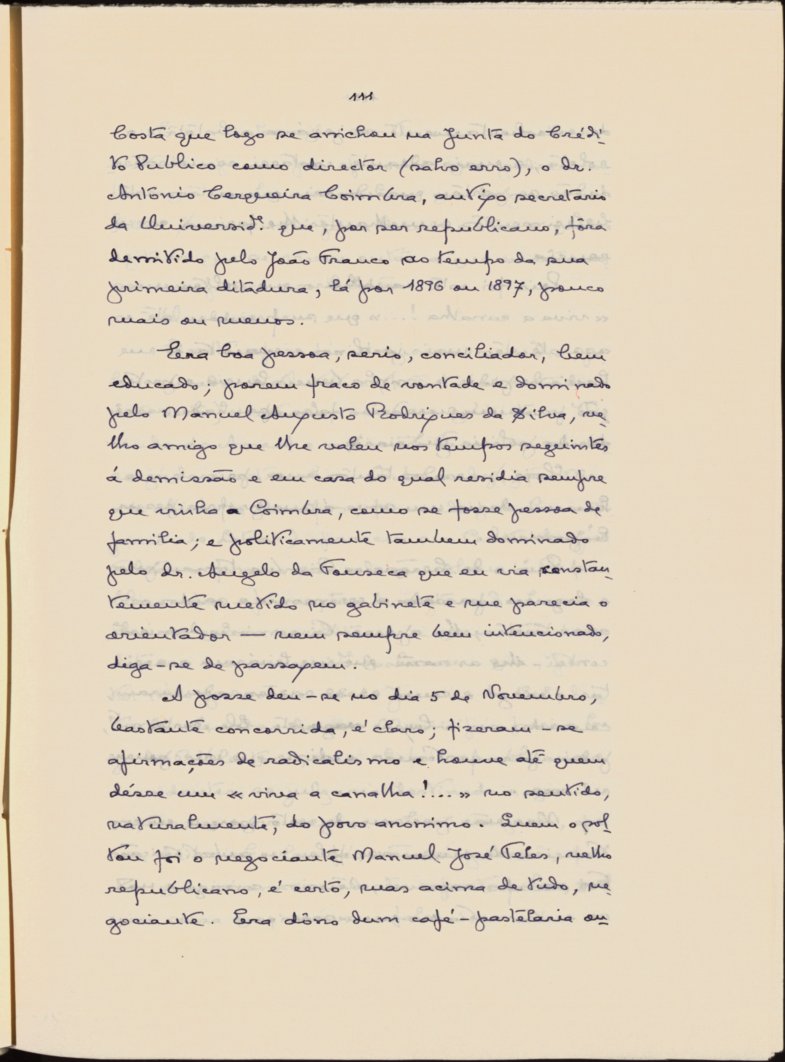 111
Costa que logo se anichou na Junta do Crédi-
to Publico como director (salvo erro), o dr.
António Cerqueira Coimbra, antigo secretario
da Universid.e que, por ser republicano, fôra
demitido pelo João Franco ao tempo da sua
primeira ditadura, lá por 1896 ou 1897, pouco
mais ou menos.
Era boa pessoa, serio, conciliador, bem
educado; porem fraco de vontade e dominado
pelo Manuel Augusto Rodrigues da Silva, ve-
lho amigo que lhe valeu nos tempos seguintes
á demissão e em casa do qual residia sempre
que vinha a Coimbra, como se fosse pessoa de
familia; e politicamente tambem dominado
pelo dr. Angelo da Fonseca que eu via constan-
temente metido no gabinete e me parecia o
orientador — nem sempre bem intencionado,
diga-se de passagem.
A posse deu-se no dia 5 de Novembro,
bastante concorrida, é claro; fizeram-se
afirmações de radicalismo e houve até quem
désse um «viva a canalha!...» no sentido,
naturalmente, do povo anonimo. Quem o sol-
tou foi o negociante Manuel José Teles, velho
republicano, é certo, mas acima de tudo, ne-
gociante. Era dôno dum café-pastelaria ou-